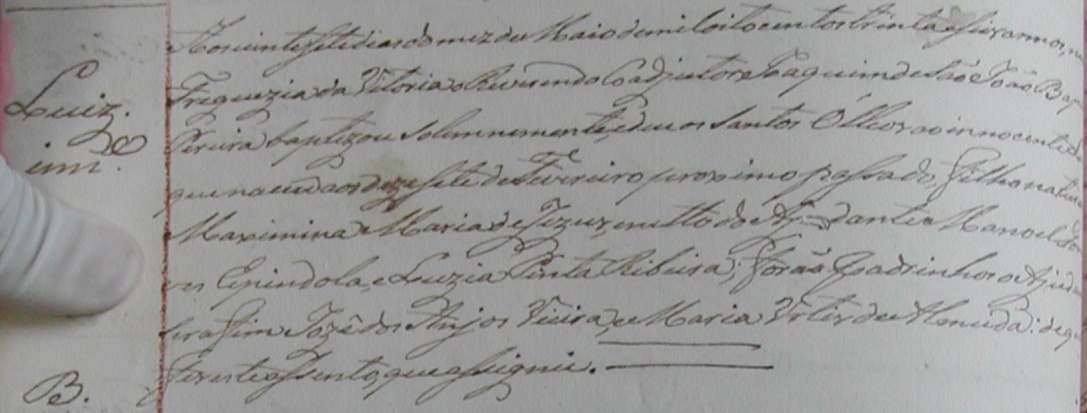 Aos vinte sete dias do mez de Maio de mil oito centos trinta e seis annos, n
Luiz.
Freguezia da Vitoria o Reverendo Coadjutor Joaquim de São João Bap
Pereira baptizou solemnemente, e deu os Santos Óleos ao innocente
inn.e
que nasceu aos dezesete de Fevereiro proximo passado, Filho natu
Maximina Maria de Jezus, neto do Ajudante Manoel
Espindola, e Luzia Pinta Ribeira; forão Padrinhos o Ajud
Serafim Jozé dos Anjos Vieira, e Maria de Almeida: de q
fiz este assento, que assignei.
B.